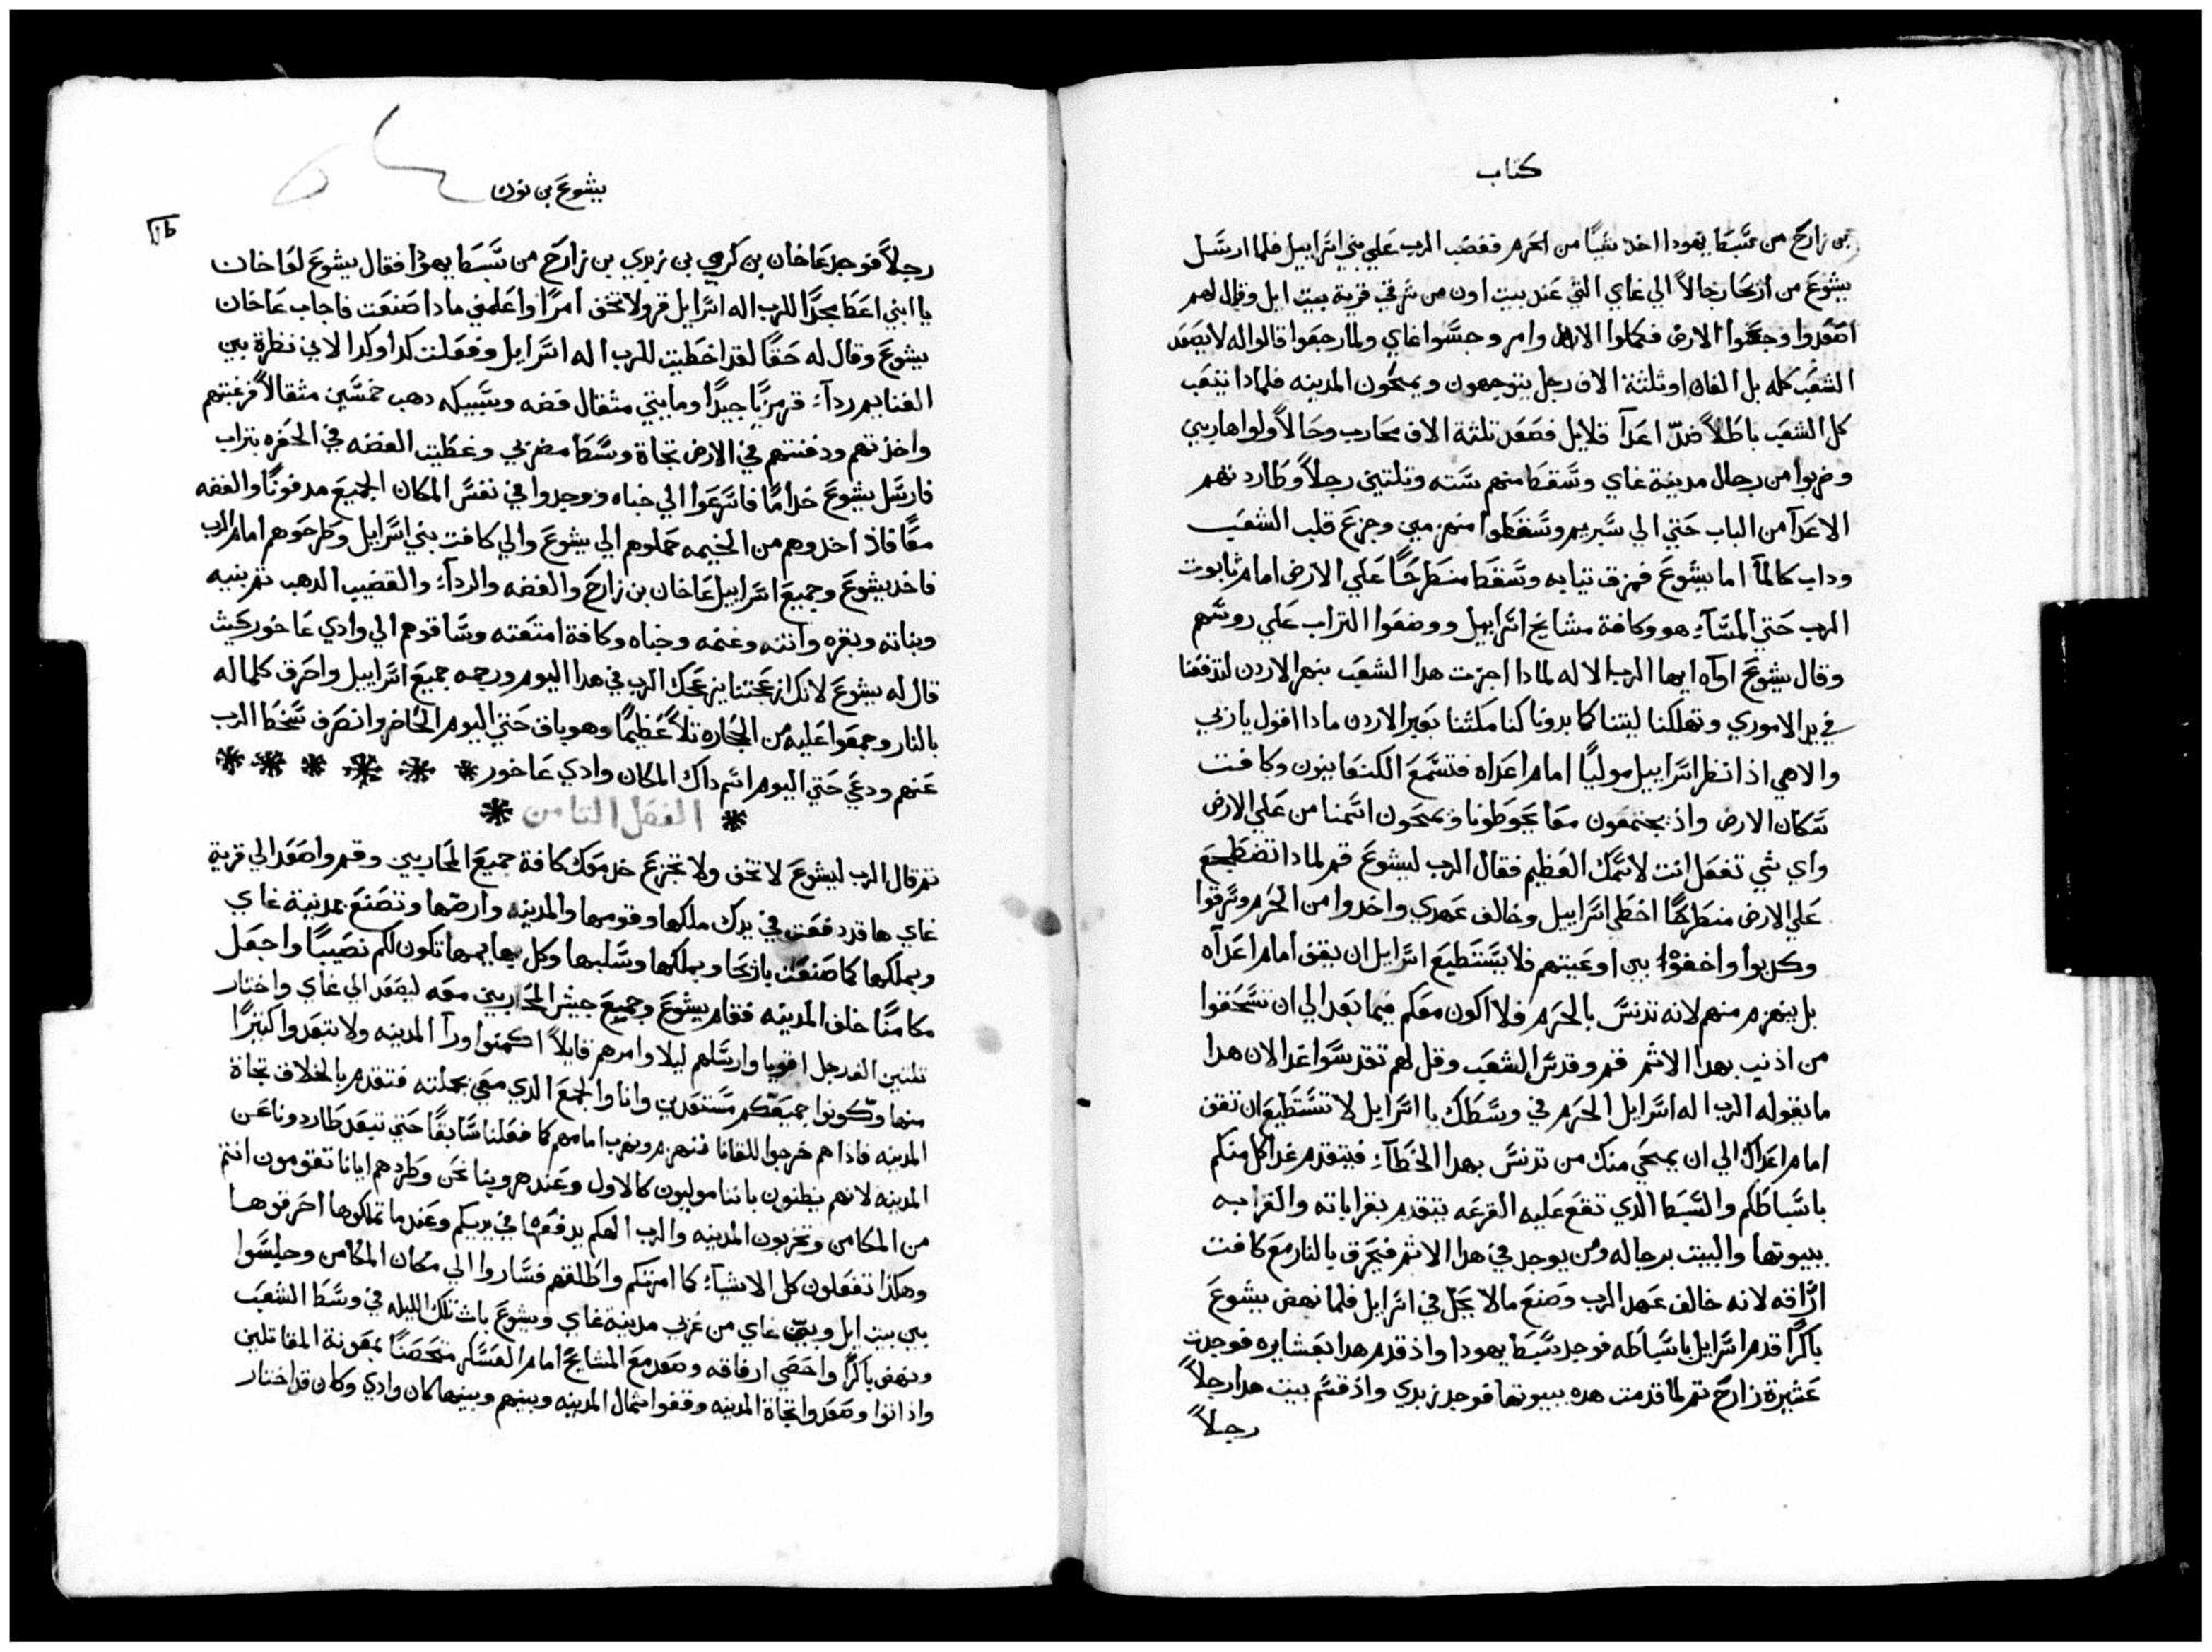 كتاب
بن زارح من سبط يهودا اخذ شيا من الحرم فغضب الرب علي بني اسراييل فلما ارسل
يشوع من اريحا رجالاً الي غاي التي عند بيت اون من شرقي قرية بيت ايل وقال لهم
اصعدوا وجسوا الارض فكملوا الاوامر وجسوا غاي ولما رجعوا قالوا له لا يصعد
الشعب كله بل الفان او ثلثة الاف رجل يتوجهون ويمحون المدينه فلمادا نتعب
كل الشعب باطلاً ضدّ اعدآ قلايل فصعد تلثة الاف محارب وحالاً ولوا هاربين
وضربوا من رجال مدينة غاي وسقط منهم سته وتلتين رجلاً وطاردتهم
الاعدآ من الباب حتي الي سبريم وسقطوا منهزمين وجزع قلب الشعب
وداب كالمآ اما يشوع فمزق تيابه وسقط منطرحًا علي الارض امام تابوت
الرب حتي المسآء هو وكافة مشايخ اسراييل ووضعوا التراب علي روسهم
وقال يشوع اواه ايها الرب الاله لمادا اجزت هدا الشعب نهر الاردن لتدفعنا
في يد الاموري وتهلكنا ليتنا كما بدونا كنا مكثنا بعبر الاردن مادا اقول يا ربي
والاهي اذ انظر اسراييل موليًا امام اعداه فتسمع الكنعانيون وكافت
سكان الارض واذ يجتمعون معًا يحوطونا ويمحون اسمنا من علي الارض
واي شي تفعل انت لاسمك العظيم فقال الرب ليشوع قم لمادا تضطجع
علي الارض منطرحًا اخطي اسراييل وخالف عهدي واخدوا من الحرم وسرقوا
وكدبوا واخفوا بين اوعيتهم فلا يستطيع اسرايل ان يقف امام اعدآه
بل ينهزم منهم لانه تدنس بالحرم فلا اكون معكم فيما بعد الي ان تسحقوا
من اذنب بهدا الاثم قم وقدس الشعب وقل لهم تقدسوا غدا لان هدا
ما يقوله الرب اله اسرايل الحرم في وسطك يا اسرايل لا تستطيع ان تقف
امام اعداك الي ان يمحي منك من تدنس بهدا الخطآء فيتقدم غدا كل منكم
باسباطكم والسبط الدي تقع عليه القرعه يتقدم بقراباته والقرابه
ببيوتها والبيت برجاله ومن يوجد في هدا الاثم فيحرق بالنار مع كافت
ارزاقه لانه خالف عهد الرب وصنع ما لا يحل في اسرايل فلما نهض يشوع
باكرًا قدم اسرايل باسباطه فوجد سبط يهودا واذ قدم هدا بعشايره فوجدت
عشيرة زارح تم لما قدمت هده ببيوتها فوجد زبدي واذ قسم بيت هدا رجلاً
رجلاً
يشوع بن نون
رجلاً فوجد عاخان بن كرمي بن زبدي بن زارح من سبط يهودا فقال يشوع لعاخان
يا ابني اعط مجدًا للرب اله اسرايل قر ولا تخف امرًا واعلمني مادا صنعت فاجاب عاخان
يشوع وقال له حقًا لقد اخطيت للرب اله اسرايل وفعلت كدا وكدا لاني نظرة بين
الغنايم ردآء قرمزيًا جيدًا ومايتي مثقال فضه وسبيكه دهب خمسين مثقالاً فرغبتهم
واخذتهم ودفنتهم في الارض تجاة وسط مضربي وغطيت الفضه في الحفره بتراب
فارسل يشوع خدامًا فاسرعوا الي خباه ووجدوا في نفس المكان الجميع مدفونًا والفضه
معًا فاذ اخدوهم من الخيمه حملوهم الي يشوع والي كافت بني اسرايل وطرحوهم امام الرب
فاخد يشوع وجميع اسراييل عاخان بن زارح والفضه والردآء والقضيب الدهب تم بنيه
وبناته وبقره واتنه وغنمه وخباه وكافة امتعته وساقوهم الي وادي عاخور حيث
قال له يشوع لانك ازعجتنا يزعجك الرب في هدا اليوم ورجمه جميع اسراييل واحرق كلما له
بالنار وجمعوا عليه من الحجاره تلاً عظيمًا وهو باق حتي اليوم الحاضر وانصرف سخط الرب
عنهم ودعي حتي اليوم اسم داك المكان وادي عاخور
الفصل التامن
تم قال الرب ليشوع لا تخف ولا تجزع خد معك كافة جميع المحاربين وقم واصعد الي قرية
غاي ها قد دفعت في يدك ملكها وقومها والمدينه وارضها وتصنع بمدينة غاي
وبملكها كما صنعت باريحا وبملكها وسلبها وكل بهايمها تكون لكم نصيبًا واجعل
مكامنًا خلف المدينه فقام يشوع وجميع جيش المحاربين معه ليصعد الي غاي واختار
تلتين الف رجل اقويا وارسلهم ليلا وامرهم قايلاً اكمنوا ورآ المدينه ولا تبتعدوا كتيرًا
منها وكونوا جميعكم مستعدين وانا والجمع الدي معي بجملته فنتقدم بالخلاف تجاة
المدينه فاذا هم خرجوا للقانا فننهزم ونهرب امامهم كما فعلنا سابقًا حتي تبعد طاردونا عن
المدينه لانهم يظنون باننا موليون كالاول وعند هروبنا نحن وطردهم ايانا تقومون انتم
من المكامن وتخربون المدينه والرب الهكم يدفعها في يديكم وعند ما تملكوها احرقوها
وهكذا تفعلون كل الاشيآء كما امرتكم واطلقهم فساروا الي مكان المكامن وجلسوا
بين بيت ايل وبين غاي من غربي مدينة غاي ويشوع بات تلك الليله في وسط الشعب
ونهض باكرًا واحصي ارفاقه وصعد مع المشايخ امام العسكر متحصنًا بمعونة المقاتلين
واذ اتوا وصعدوا تجاة المدينه وقفوا شمال المدينه وبينهم وبينها كان وادي وكان قد اختار